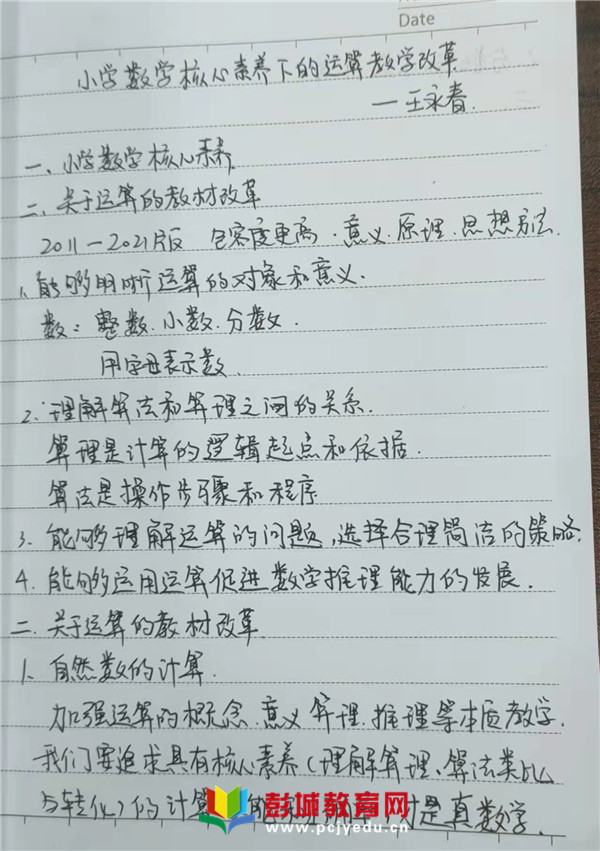 Date
小学数学核心素养下的运算教学改革
—王永春
一、小学数学核心素养
二、关于运算的教材改革
2011—2021版 包容度更高、意义、原理、思想方法.
1.能够明晰运算的对象和意义.
数：整数、小数、分数.
用字母表示数.
2.理解算法和算理之间的关系.
算理是计算的逻辑起点和依据.
算法是操作步骤和程序
3.能够理解运算的问题,选择合理简洁的策略.
4.能够运用运算促进数学推理能力的发展.
二、关于运算的教材改革
1.自然数的计算.
加强运算的概念、意义、算理、推理等本质教学.
我们要追求具有核心素养(理解算理、算法类比
与转化)的计算 是真数学.
彭城教育网
www.pcjyedu.cn